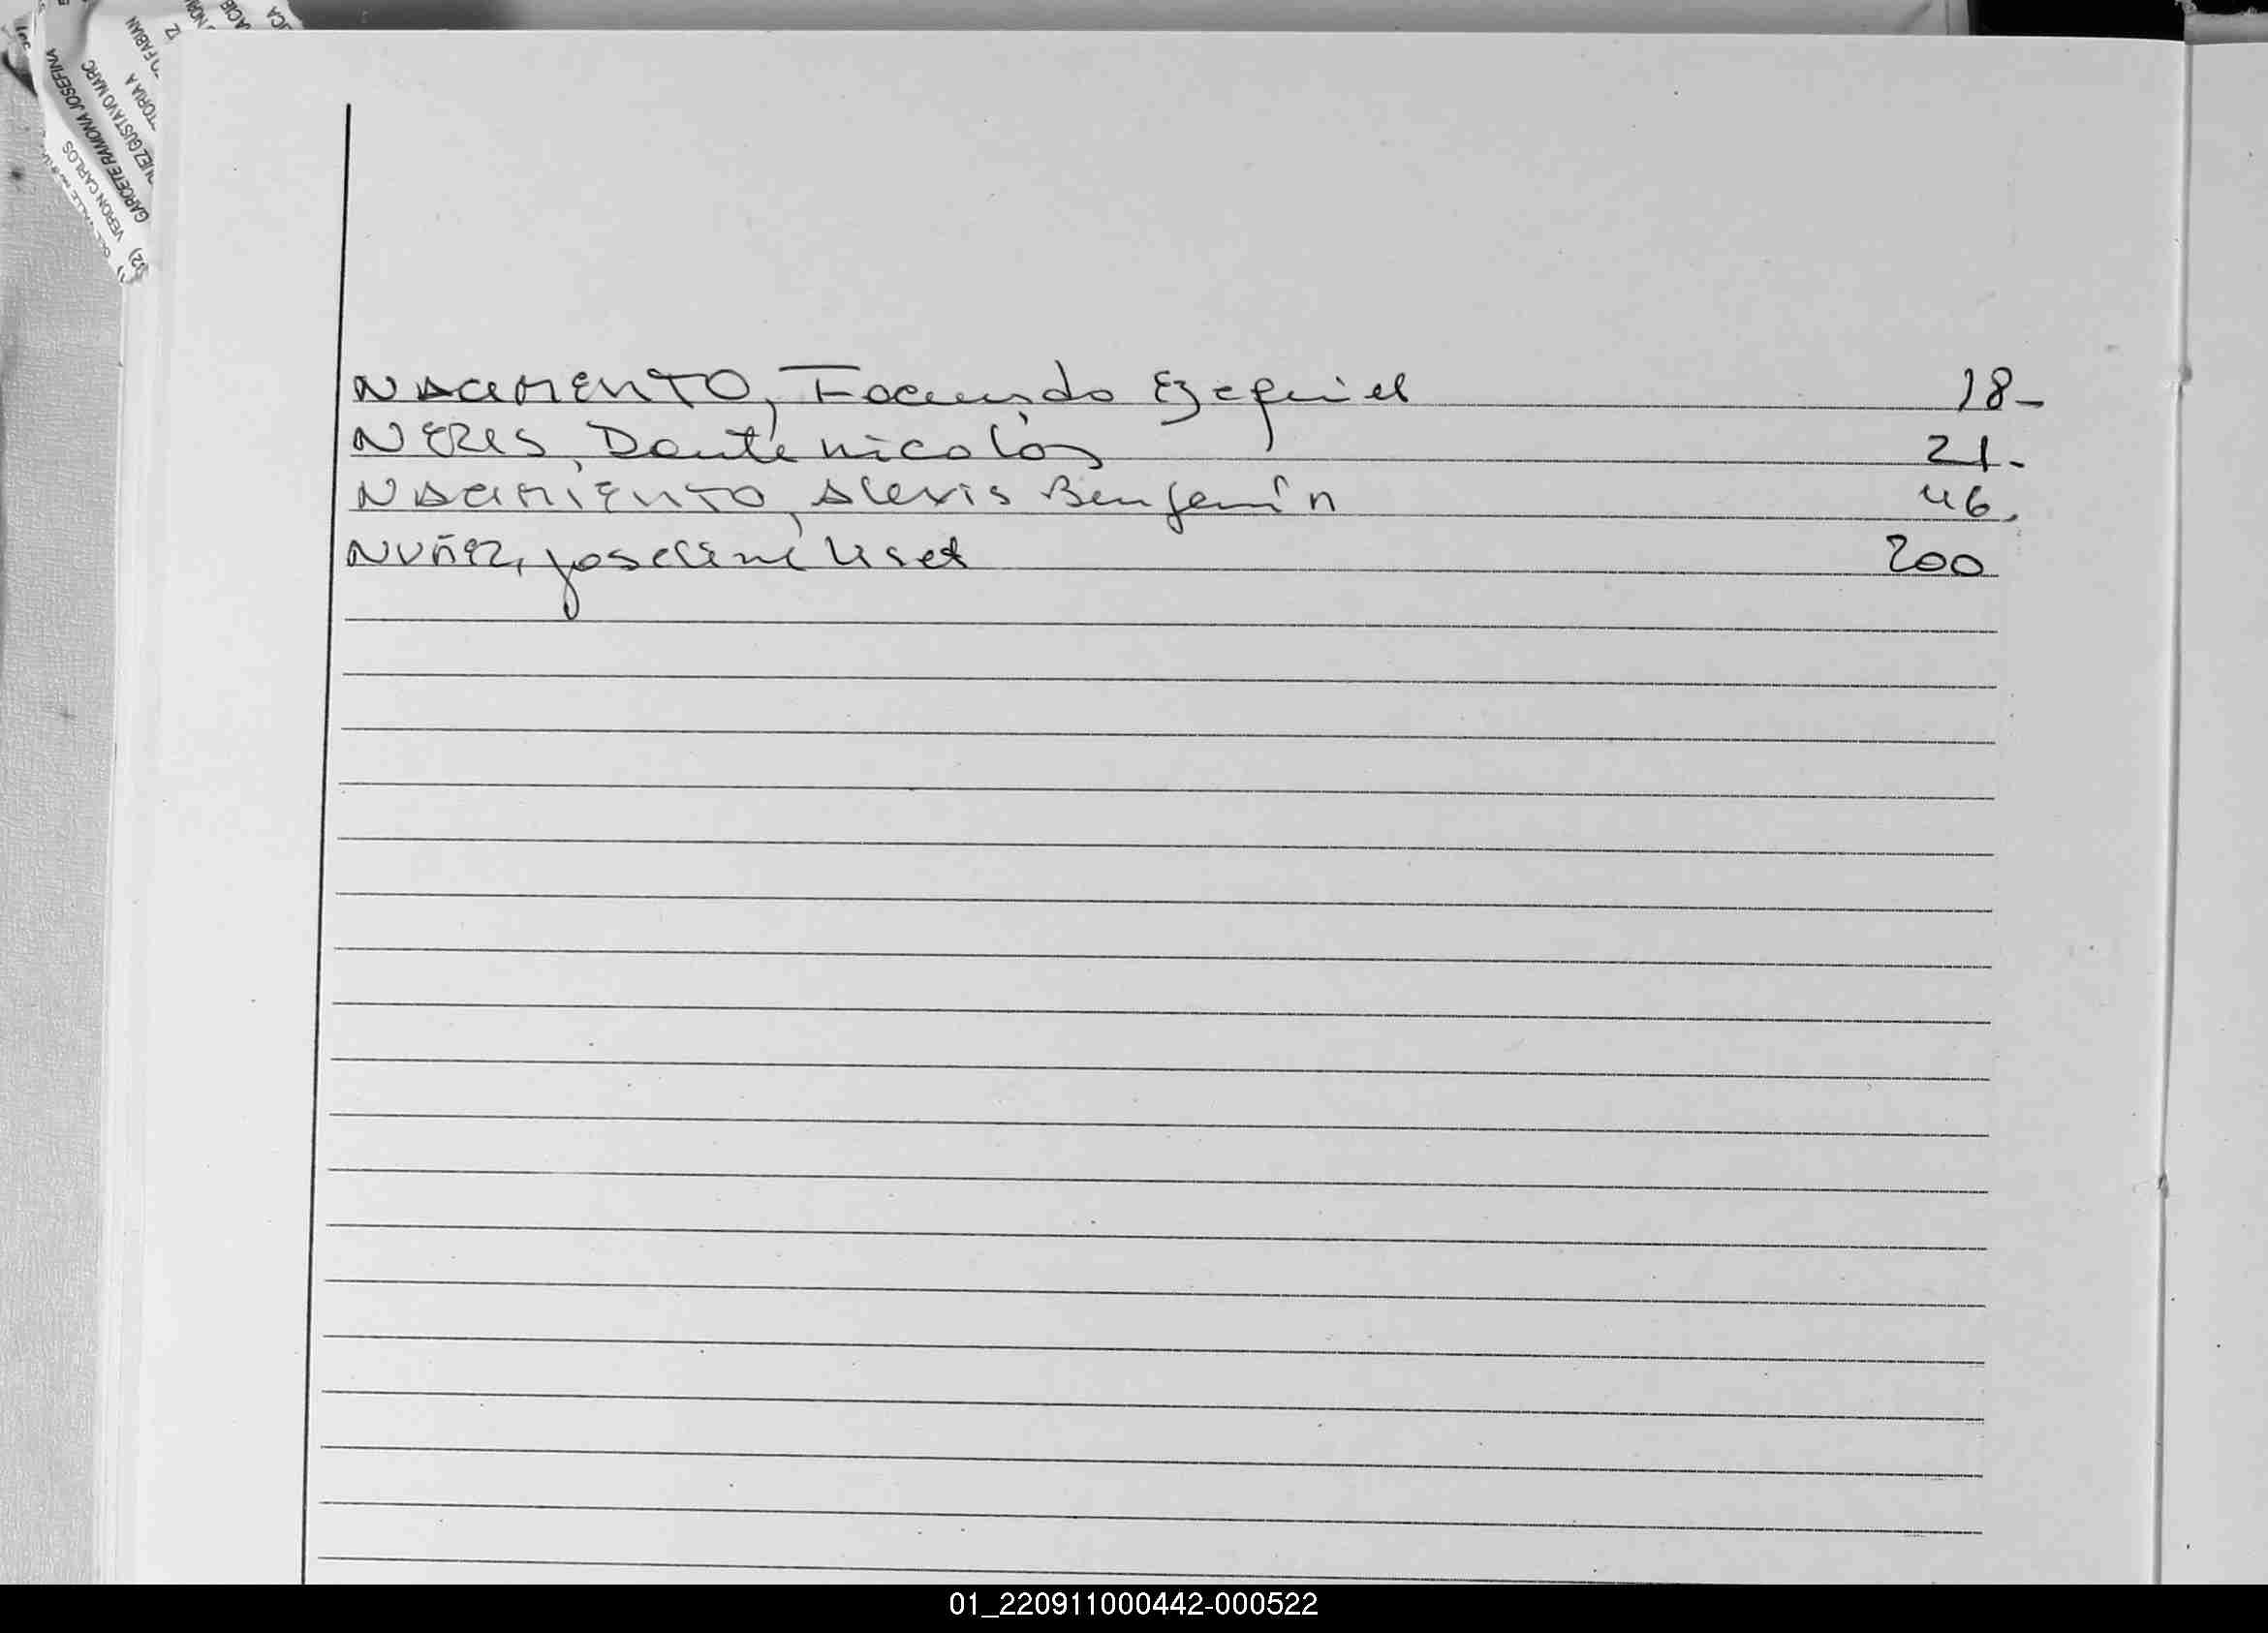 NACIMENTO, Facundo Ezequiel 18-
NERIS, Dante Nicolás 21-
NACIMIENTO, Alexis Benjamín 46.
NUÑEZ, Joseline Liset 200
GARCETE RAMONA JOSEFINA
VERON CARLOS
01_220911000442-000522